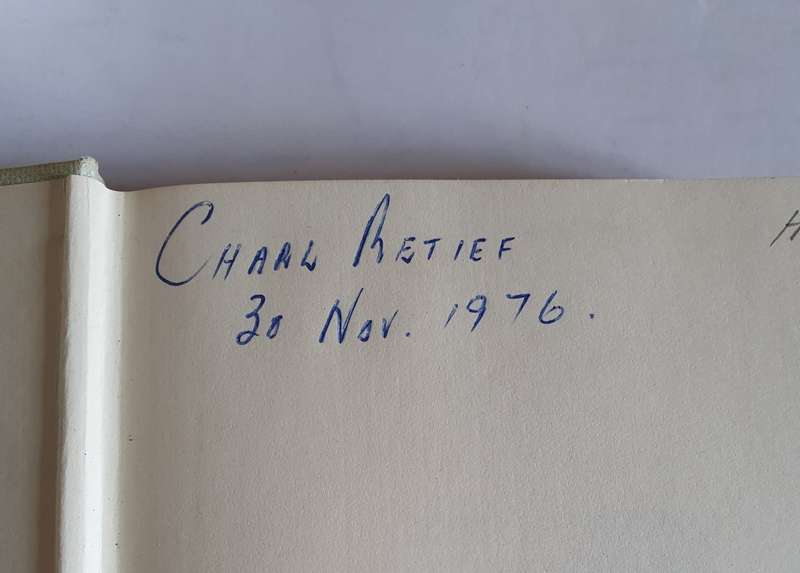 Charl Retief
30 Nov. 1976.